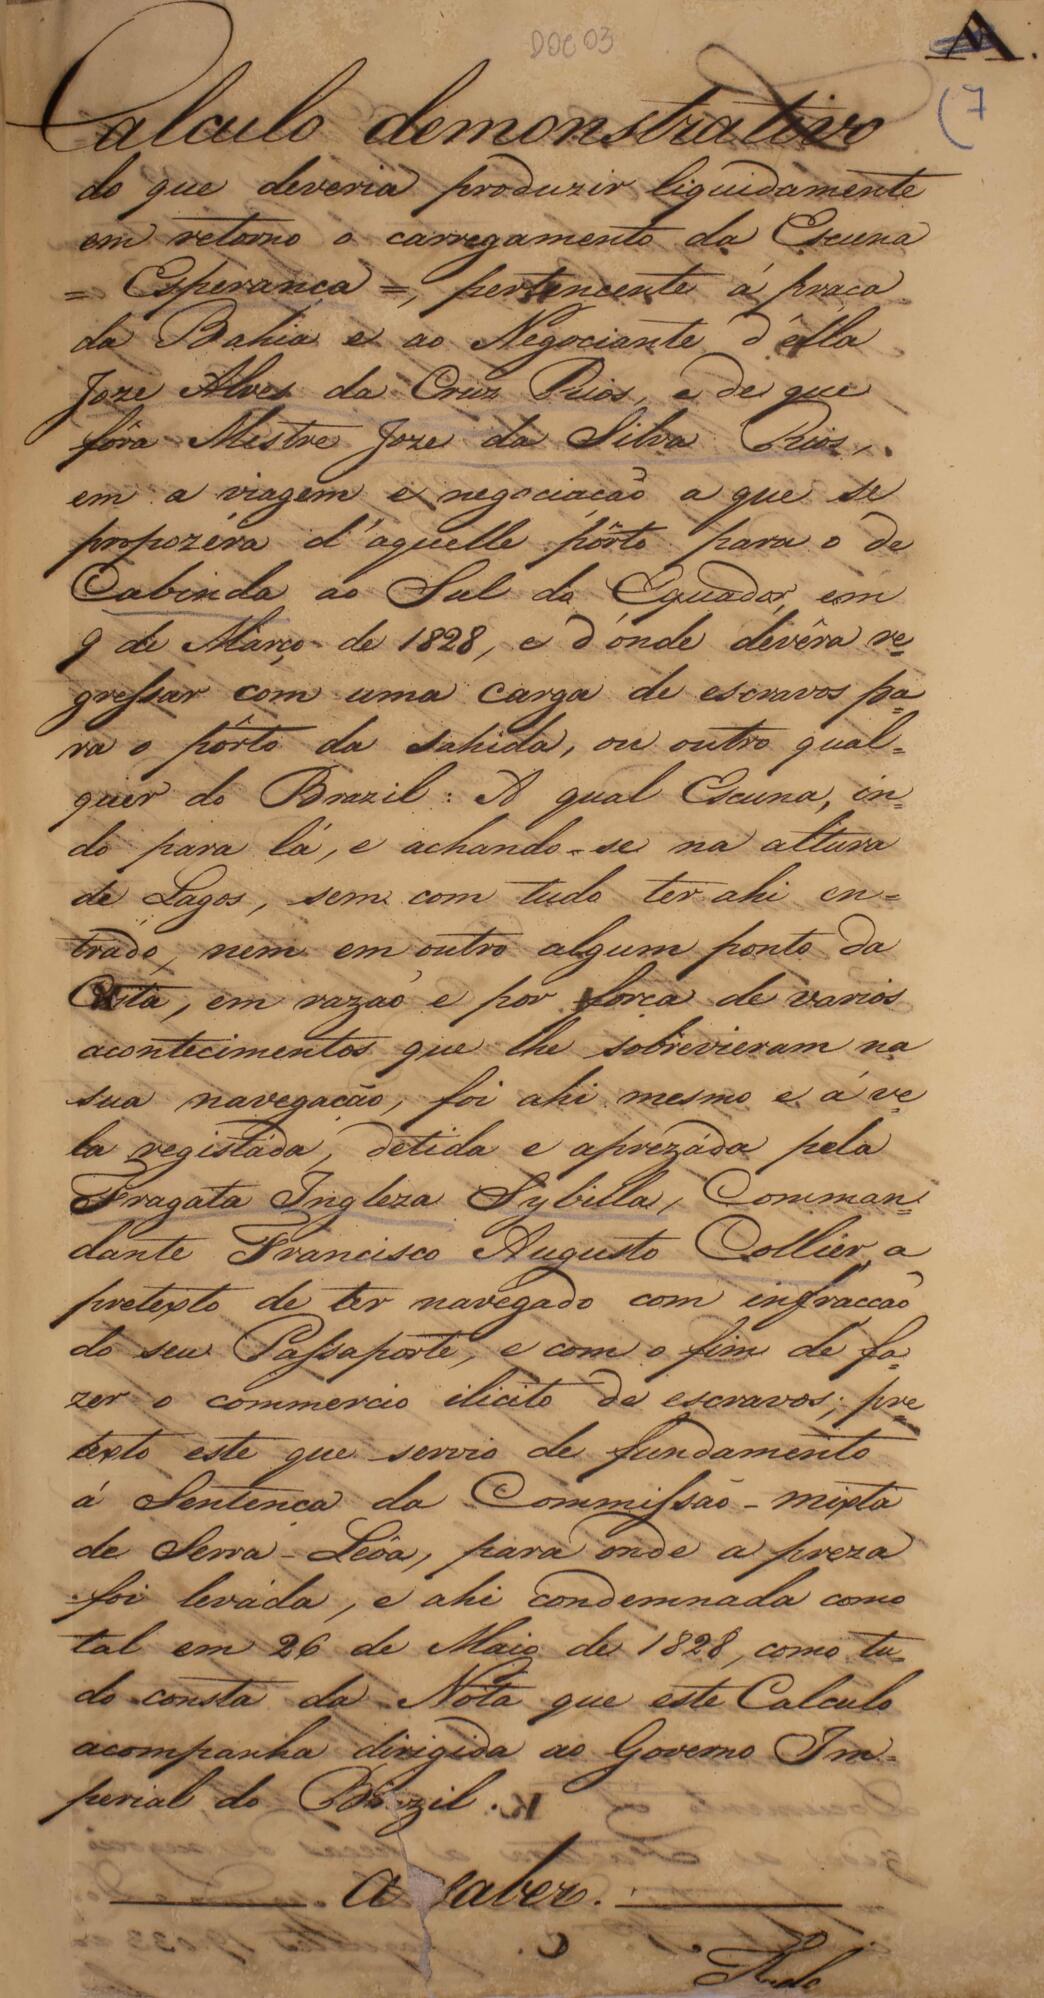 DOC 03
A.
(7
Calculo demonstrativo
do que deveria produzir liquidamente
em retorno o carregamento da Escuna
= Esperança =, pertencente á praça
da Bahia e ao Negociante d'ella
Joze Alves da Cruz Rios, e de que
fôra Mestre Joze da Silva Rios,
em a viagem e negociação a que se
propozéra d'aquelle pôrto para o de
Cabinda ao Sul do Equador, em
9 de Março de 1828, e d'onde devêra re=
gressar com uma carga de escravos pa=
ra o pôrto da sahida, ou outro qual=
quer do Brazil: A qual Escuna, in=
do para lá, e achando-se na altura
de Lagos, sem com tudo ter ahi en=
trado, nem em outro algum ponto da
Costa, em razaõ e por força de varios
acontecimentos que lhe sobrevieram na
sua navegação, foi ahi mesmo e á ve
la registáda, detida e aprezáda pela
Fragata Ingleza Sybilla, Comman=
dante Francisco Augusto Collier, a
pretexto de ter navegado com infracção
do seu Passaporte, e com o fim de fa=
zer o commercio ilicito de escravos; pre=
texto este que servio de fundamento
á Sentença da Commissão-mixta
de Serra-Leôa, para onde a preza
foi leváda, e ahi condemnada como
tal em 26 de Maio de 1828, como tu=
do consta da Nóta que este Calculo
acompanha dirigida ao Governo Im=
perial do Brazil.
A saber.